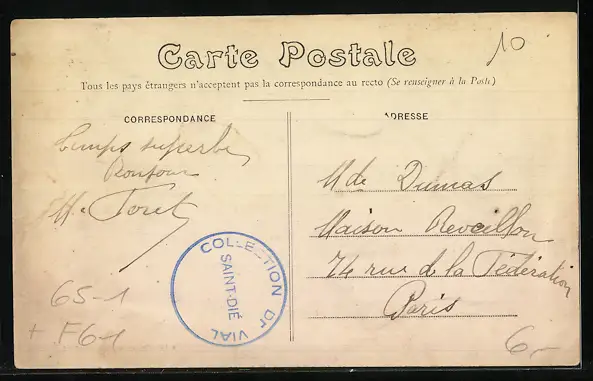 10
Carte Postale
Tous les pays étrangers n'acceptent pas la correspondance au recto (Se renseigner à la Poste)
CORRESPONDANCE
ADRESSE
Temps superbe
Bonjour
M. Foret
Mde Dumas
Maison Reveillon
74 rue de la Fédération
Paris
COLLECTION Dr VIAL
SAINT-DIÉ
65-1
+ F61
6.-